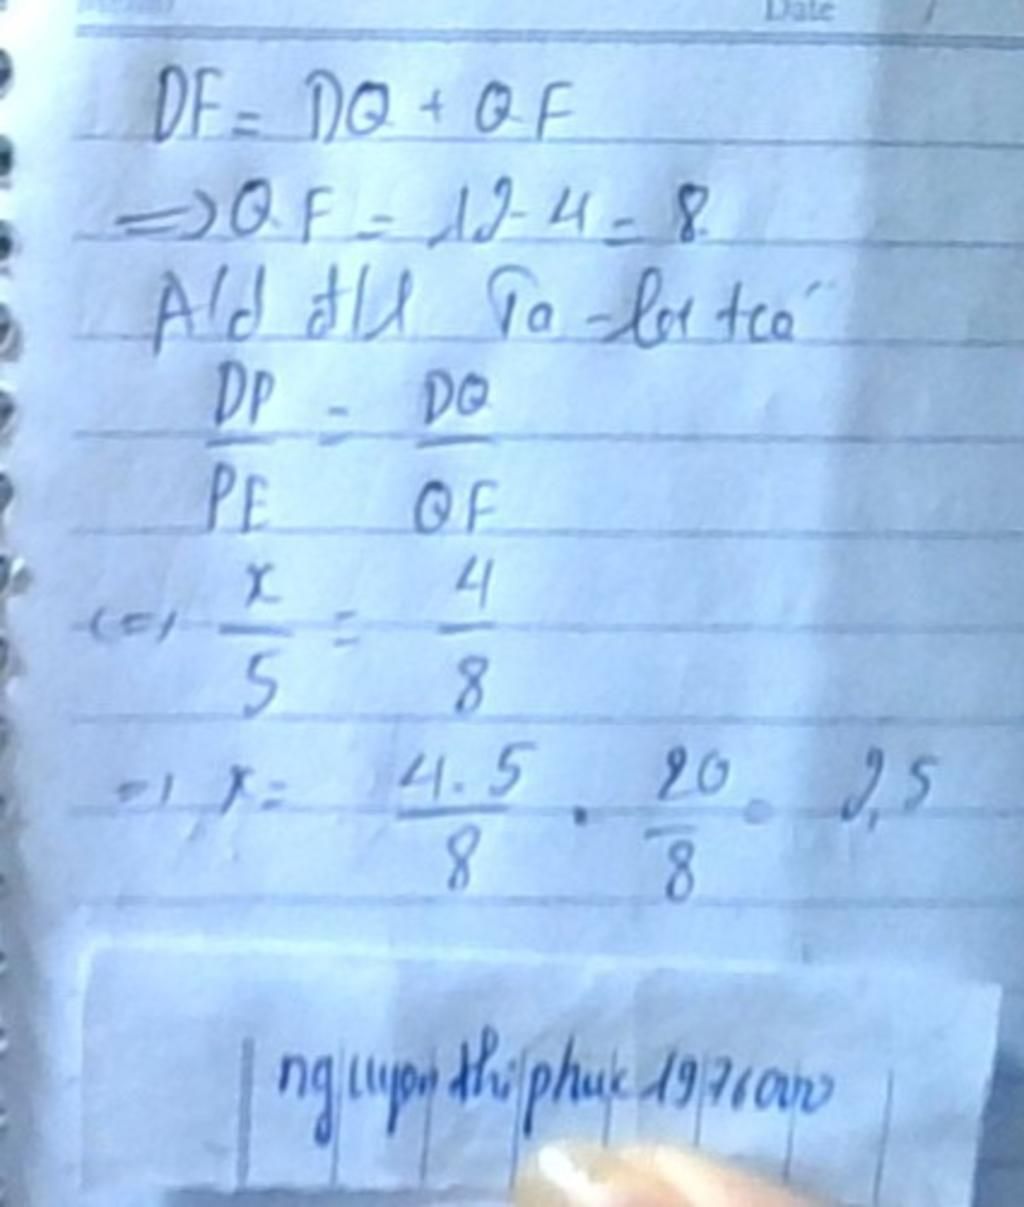 Date /
DF = DQ + QF
=> QF = 12 - 4 = 8
A/d đ/l Ta-let tcó
DP/PE = DQ/QF
<=> x/5 = 4/8
=> x = 4.5/8 = 20/8 = 2,5
nguyen thi phuc